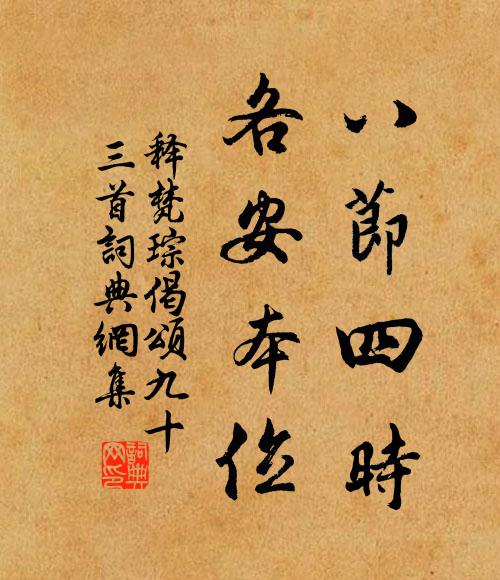 八節四時
各安本位
释梵琮偈頌九十
三首詞典網集
詞典
网印